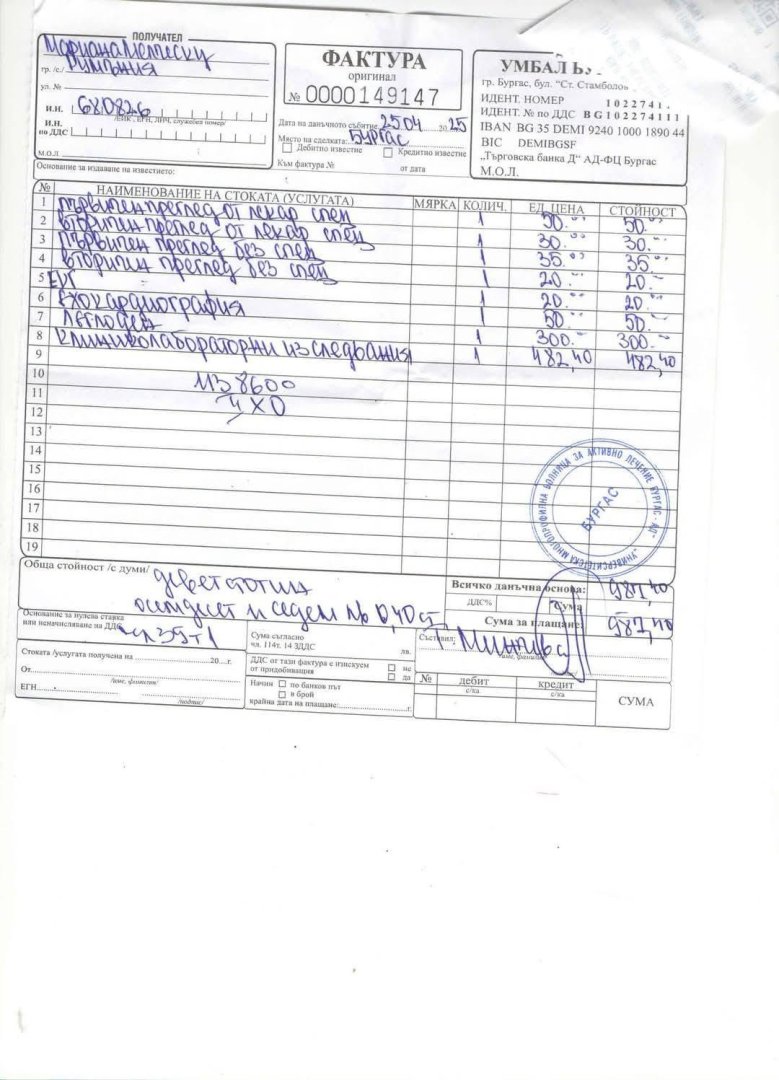 ПОЛУЧАТЕЛ
Мариана
гр. /с./ Румъния
ул. №
И.Н. 680826
/ЕИК, ЕГН, ЛНЧ, служебен номер/
И.Н.
по ДДС
М.О.Л.
ФАКТУРА
оригинал
№ 0000149147
Дата на данъчното събитие 25.04 2025
Място на сделката: Бургас
Дебитно известие Кредитно известие
Към фактура № от дата
УМБАЛ
гр. Бургас, бул. "Ст. Стамболов
ИДЕНТ. НОМЕР 1022741
ИДЕНТ. № по ДДС BG102274111
IBAN BG 35 DEMI 9240 1000 1890 44
BIC DEMIBGSF
„Търговска банка Д“ АД-ФЦ Бургас
М.О.Л.
Основание за издаване на известието:
№ НАИМЕНОВАНИЕ НА СТОКАТА (УСЛУГАТА) МЯРКА КОЛИЧ. ЕД. ЦЕНА СТОЙНОСТ
1 първичен преглед от лекар спец 1 50.-- 50.--
2 вторичен преглед от лекар спец 1 30.-- 30.--
3 първичен преглед без спец 1 35.-- 35.--
4 вторичен преглед без спец 1 20.-- 20.--
5 ЕКГ 1 20.-- 20.--
6 Ехокардиография 1 50.-- 50.--
7 Леглоден 1 300.-- 300.--
8 Клиниколабораторни изследвания 1 482,40 482,40
9
10 ИЗ 8600
11 ЧХО
12
13
14
15
16
17
18
19
УНИВЕРСИТЕТСКА МНОГОПРОФИЛНА БОЛНИЦА ЗА АКТИВНО ЛЕЧЕНИЕ БУРГАС АД
БУРГАС
Обща стойност /с думи/ деветстотин
осемдесет и седем лв 0,40 ст.
Всичко данъчна основа: 987,40
ДДС% Сума
Сума за плащане: 987,40
Основание за нулева ставка
или неначисляване на ДДС чл 39 т 1
Сума съгласно
чл. 114т. 14 ЗДДС лв.
Съставил:
/име, фамилия/
Стоката /услугата получена на 20 г.
От
/име, фамилия/
ЕГН
/подпис/
ДДС от тази фактура е изискуем не
от придобивация да
Начин по банков път
в брой
крайна дата на плащане: г.
№ дебит кредит СУМА
с/ка с/ка